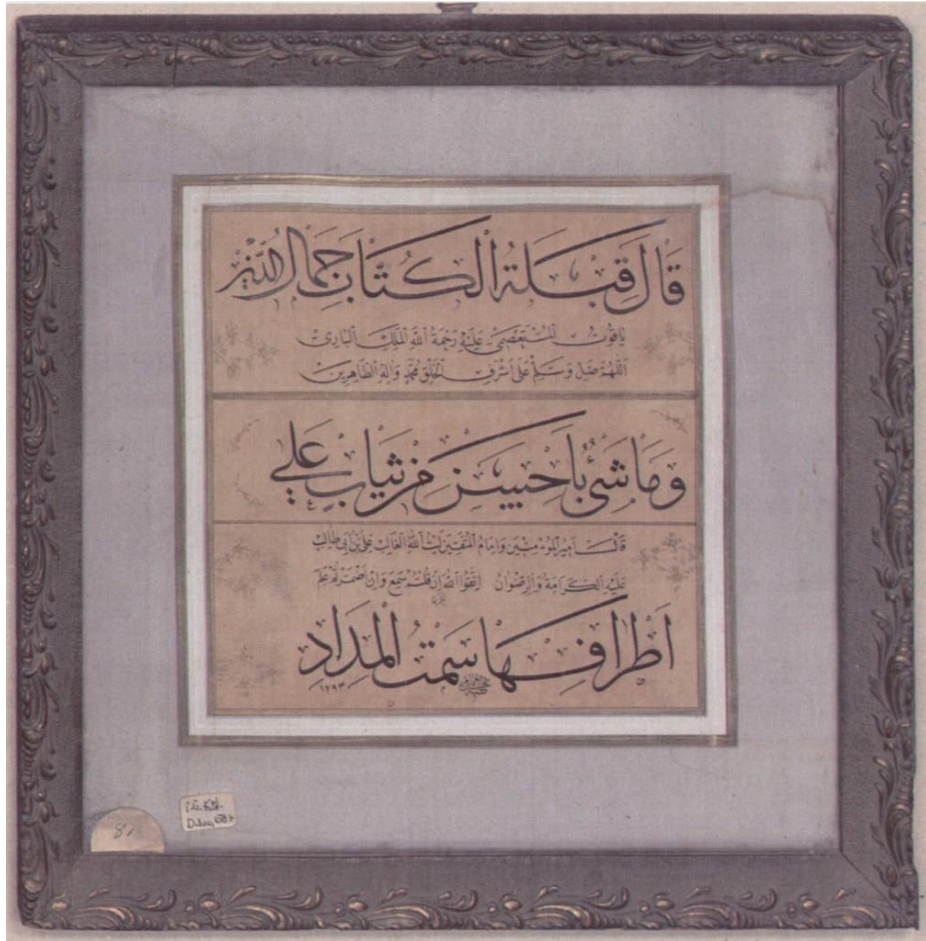 قَالَ قِبْلَةُ الْكُتَّابِ جَمَالُ الدِّينِ
يَاقُوتُ الْمُسْتَعْصِمِيّ عَلَيْهِ رَحْمَةُ اللهِ الْمَلِكِ الْبَارِئ
اَللّٰهُمَّ صَلِّ وَسَلِّمْ عَلَى أَشْرَفِ الْخَلْقِ مُحَمَّدٍ وَآلِهِ الطَّاهِرِينَ
وَمَا شَيْءٌ بِأَحْسَنَ مِنْ ثِيَابٍ عَلَى
قَالَ أَمِيرُ الْمُؤْمِنِينَ وَإِمَامُ الْمُتَّقِينَ لَيْثُ اللهِ الْغَالِبُ عَلِيُّ بْنُ أَبِي طَالِب
عَلَيْهِ الْكَرَامَةُ وَالرِّضْوَانُ اِتَّقُوا اللهَ إِنْ قُلْتُمْ سَمِعَ وَإِنْ أَضْمَرْتُمْ عَلِمَ
أَطْرَافِهَا سِمَتُ الْمِدَادِ
١٢٩٣
87